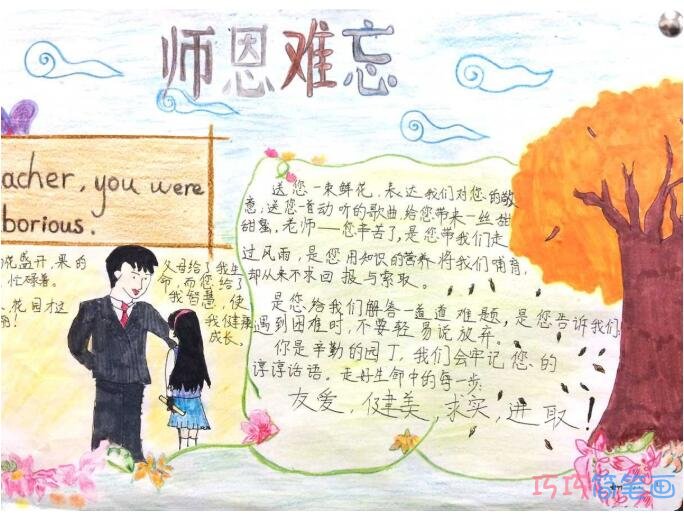 师恩难忘
acher, you were
borious.
洗盛开,果的
忙碌着。
花园才这
丽!
父母给了我生
命,而您给了
我智慧,使
我健康
成长。
送您一束鲜花,表达我们对您的敬
意;送您一首动听的歌曲,给您带来一丝甜
甜蜜,老师——您辛苦了,是您带我们走
过风雨,是您用知识的营养将我们哺育,
却从来不求回报与索取。
是您给我们解答一道道难题,是您告诉我们
遇到困难时,不要轻易说放弃。
你是辛勤的园丁,我们会牢记您的
谆谆话语。走好生命中的每一步。
友爱,健美,求实,进取!
巧巧简笔画